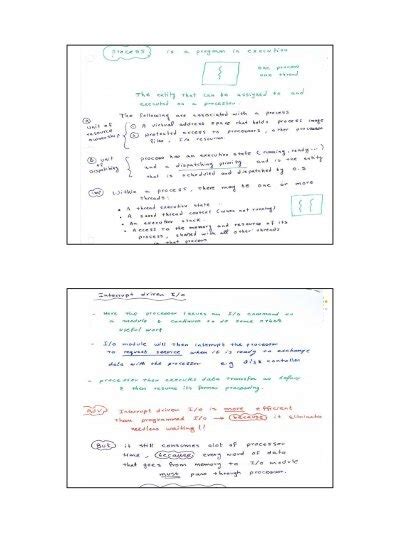 Process is a program in execution
one process
one thread
The entity that can be assigned to and
executed on a processor
The following are associated with a process
a
unit of
resource
ownership
A virtual address space that holds process image
protected access to processors, other processes
files, I/o resources
b unit
of
dispatching
process has an execution state (running, ready...)
and a dispatching priority and is the entity
that is scheduled and dispatched by O.S
Within a process, there may be one or more
threads:
• A thread execution state
• A saved thread context (when not running)
• An execution stack
• Access to the memory and resource of its
process, shared with all other threads
in that process
Interrupt driven I/o
- Here the processor issues an I/o command to
a module & continue to do some other
useful work
- I/o module will then interrupt the processor
to request service when it is ready to exchange
data with the processor e.g disk controller
- processor then executes data transfer as before
& then resume its former processing.
Adv. Interrupt driven I/o is more efficient
than programmed I/o → because it eliminate
needless waiting!!
But it still consumes alot of processor
time, because every word of data
that goes from memory to I/o module
must pass through processor.